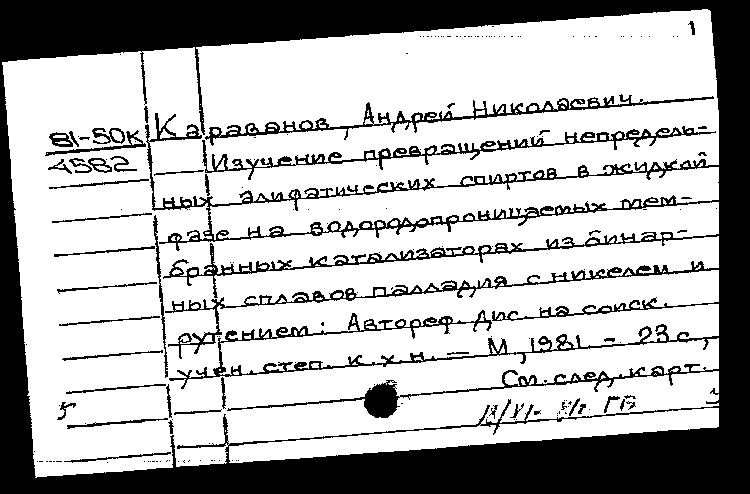 1
81-50К Караванов, Андрей Николаевич.
4582 Изучение превращений непредель-
ных алифатических спиртов в жидкой
фазе на водородопроницаемых мем-
бранных катализаторах из бинар-
ных сплавов палладия с никелем и
рутением: Автореф. дис. на соиск.
учен. степ. к.х.н. — М, 1981. - 23 с,
См. след. карт.
5
ГБ